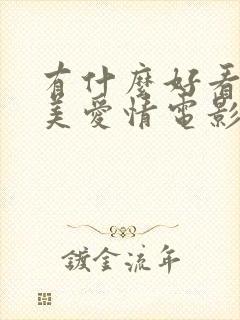 有什麼好看
美愛情電影
鍍金流年